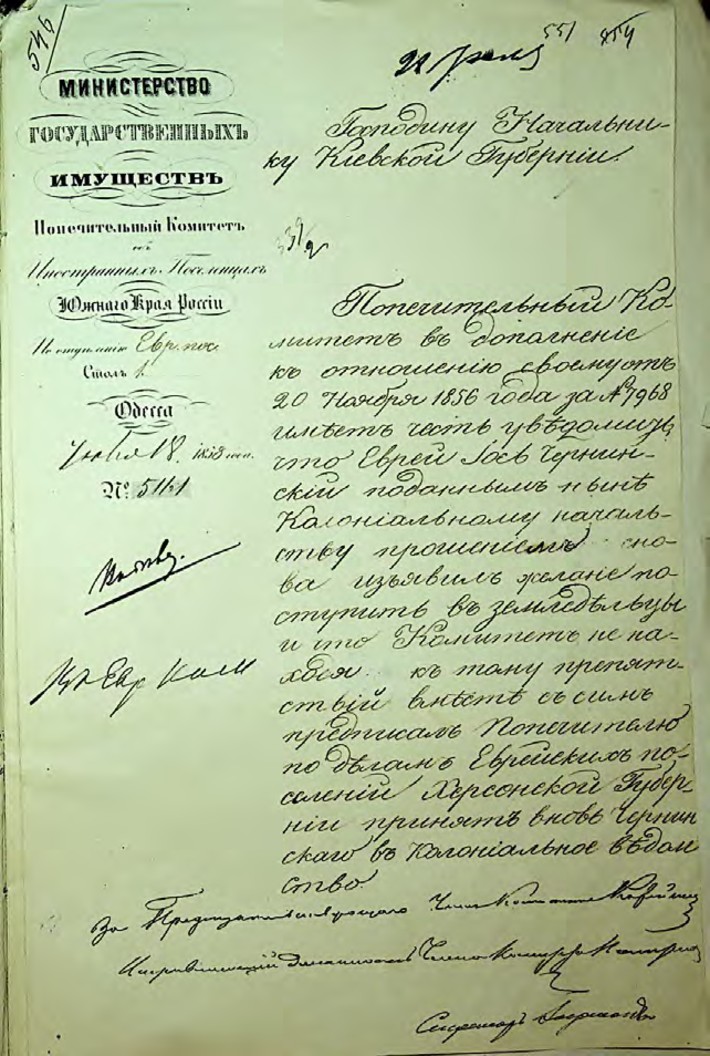 546
551
МИНИСТЕРСТВО
ГОСУДАРСТВЕННЫХЪ
ИМУЩЕСТВЪ
Попечительный Комитетъ
объ
Иностранныхъ Поселенцахъ
Южнаго Края Россіи
По отдѣленію Евр. пос.
Столъ 1.
Одесса
18
№ 5141
Господину Начальни-
ку Кіевской Губерніи.
Попечительный Ко-
митетъ въ дополненіе
къ отношенію своему отъ
20 Ноября 1856 года за № 7968
имѣетъ честь увѣдомить,
что Еврей Іось Чернин-
скій поданнымъ нынѣ
Колоніальному началь-
ству прошеніемъ сно-
ва изъявилъ желаніе по-
ступить въ земледѣльцы
и что Комитетъ не на-
ходя къ тому препят-
ствій вмѣстѣ съ симъ
предписалъ Попечителю
по дѣламъ Еврейскихъ по-
селеній Херсонской Губер-
ніи принять вновь Чернин
скаго въ Колоніальное вѣдом
ство.
За Предсѣдательствующаго Членъ Комитета
Исправляющій должность Члена Комитета
Секретарь